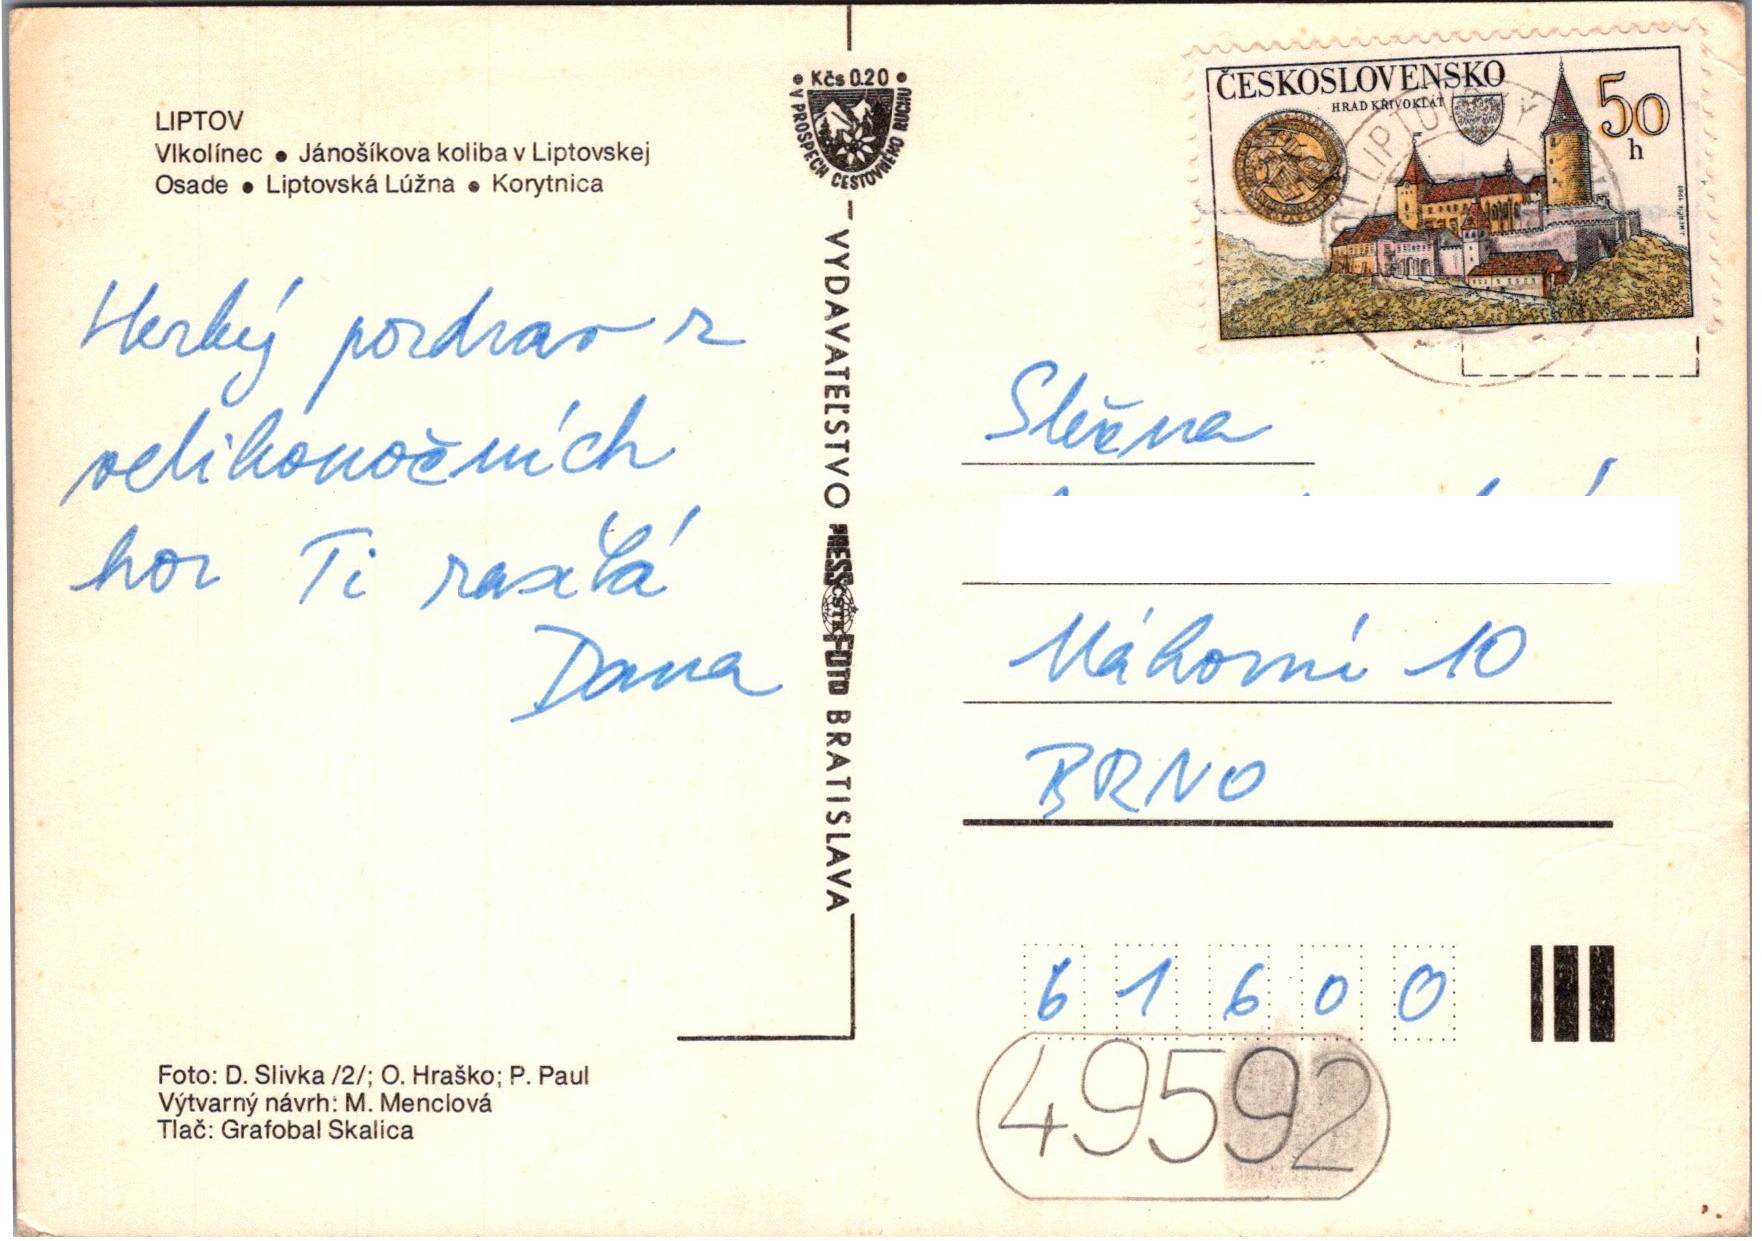 LIPTOV
Vlkolínec • Jánošíkova koliba v Liptovskej
Osade • Liptovská Lúžna • Korytnica
Hezký pozdrav z
velikonočních
hor Ti zasílá
Dana
Foto: D. Slivka /2/; O. Hraško; P. Paul
Výtvarný návrh: M. Menclová
Tlač: Grafobal Skalica
• Kčs 0.20 •
V PROSPECH CESTOVNÉHO RUCHU
VYDAVATEĽSTVO PRESSFOTO BRATISLAVA
ČSTK
ČESKOSLOVENSKO
HRAD KŘIVOKLÁT
50
h
LIPTOV
Slečna
Náhorní 10
BRNO
61600
49592